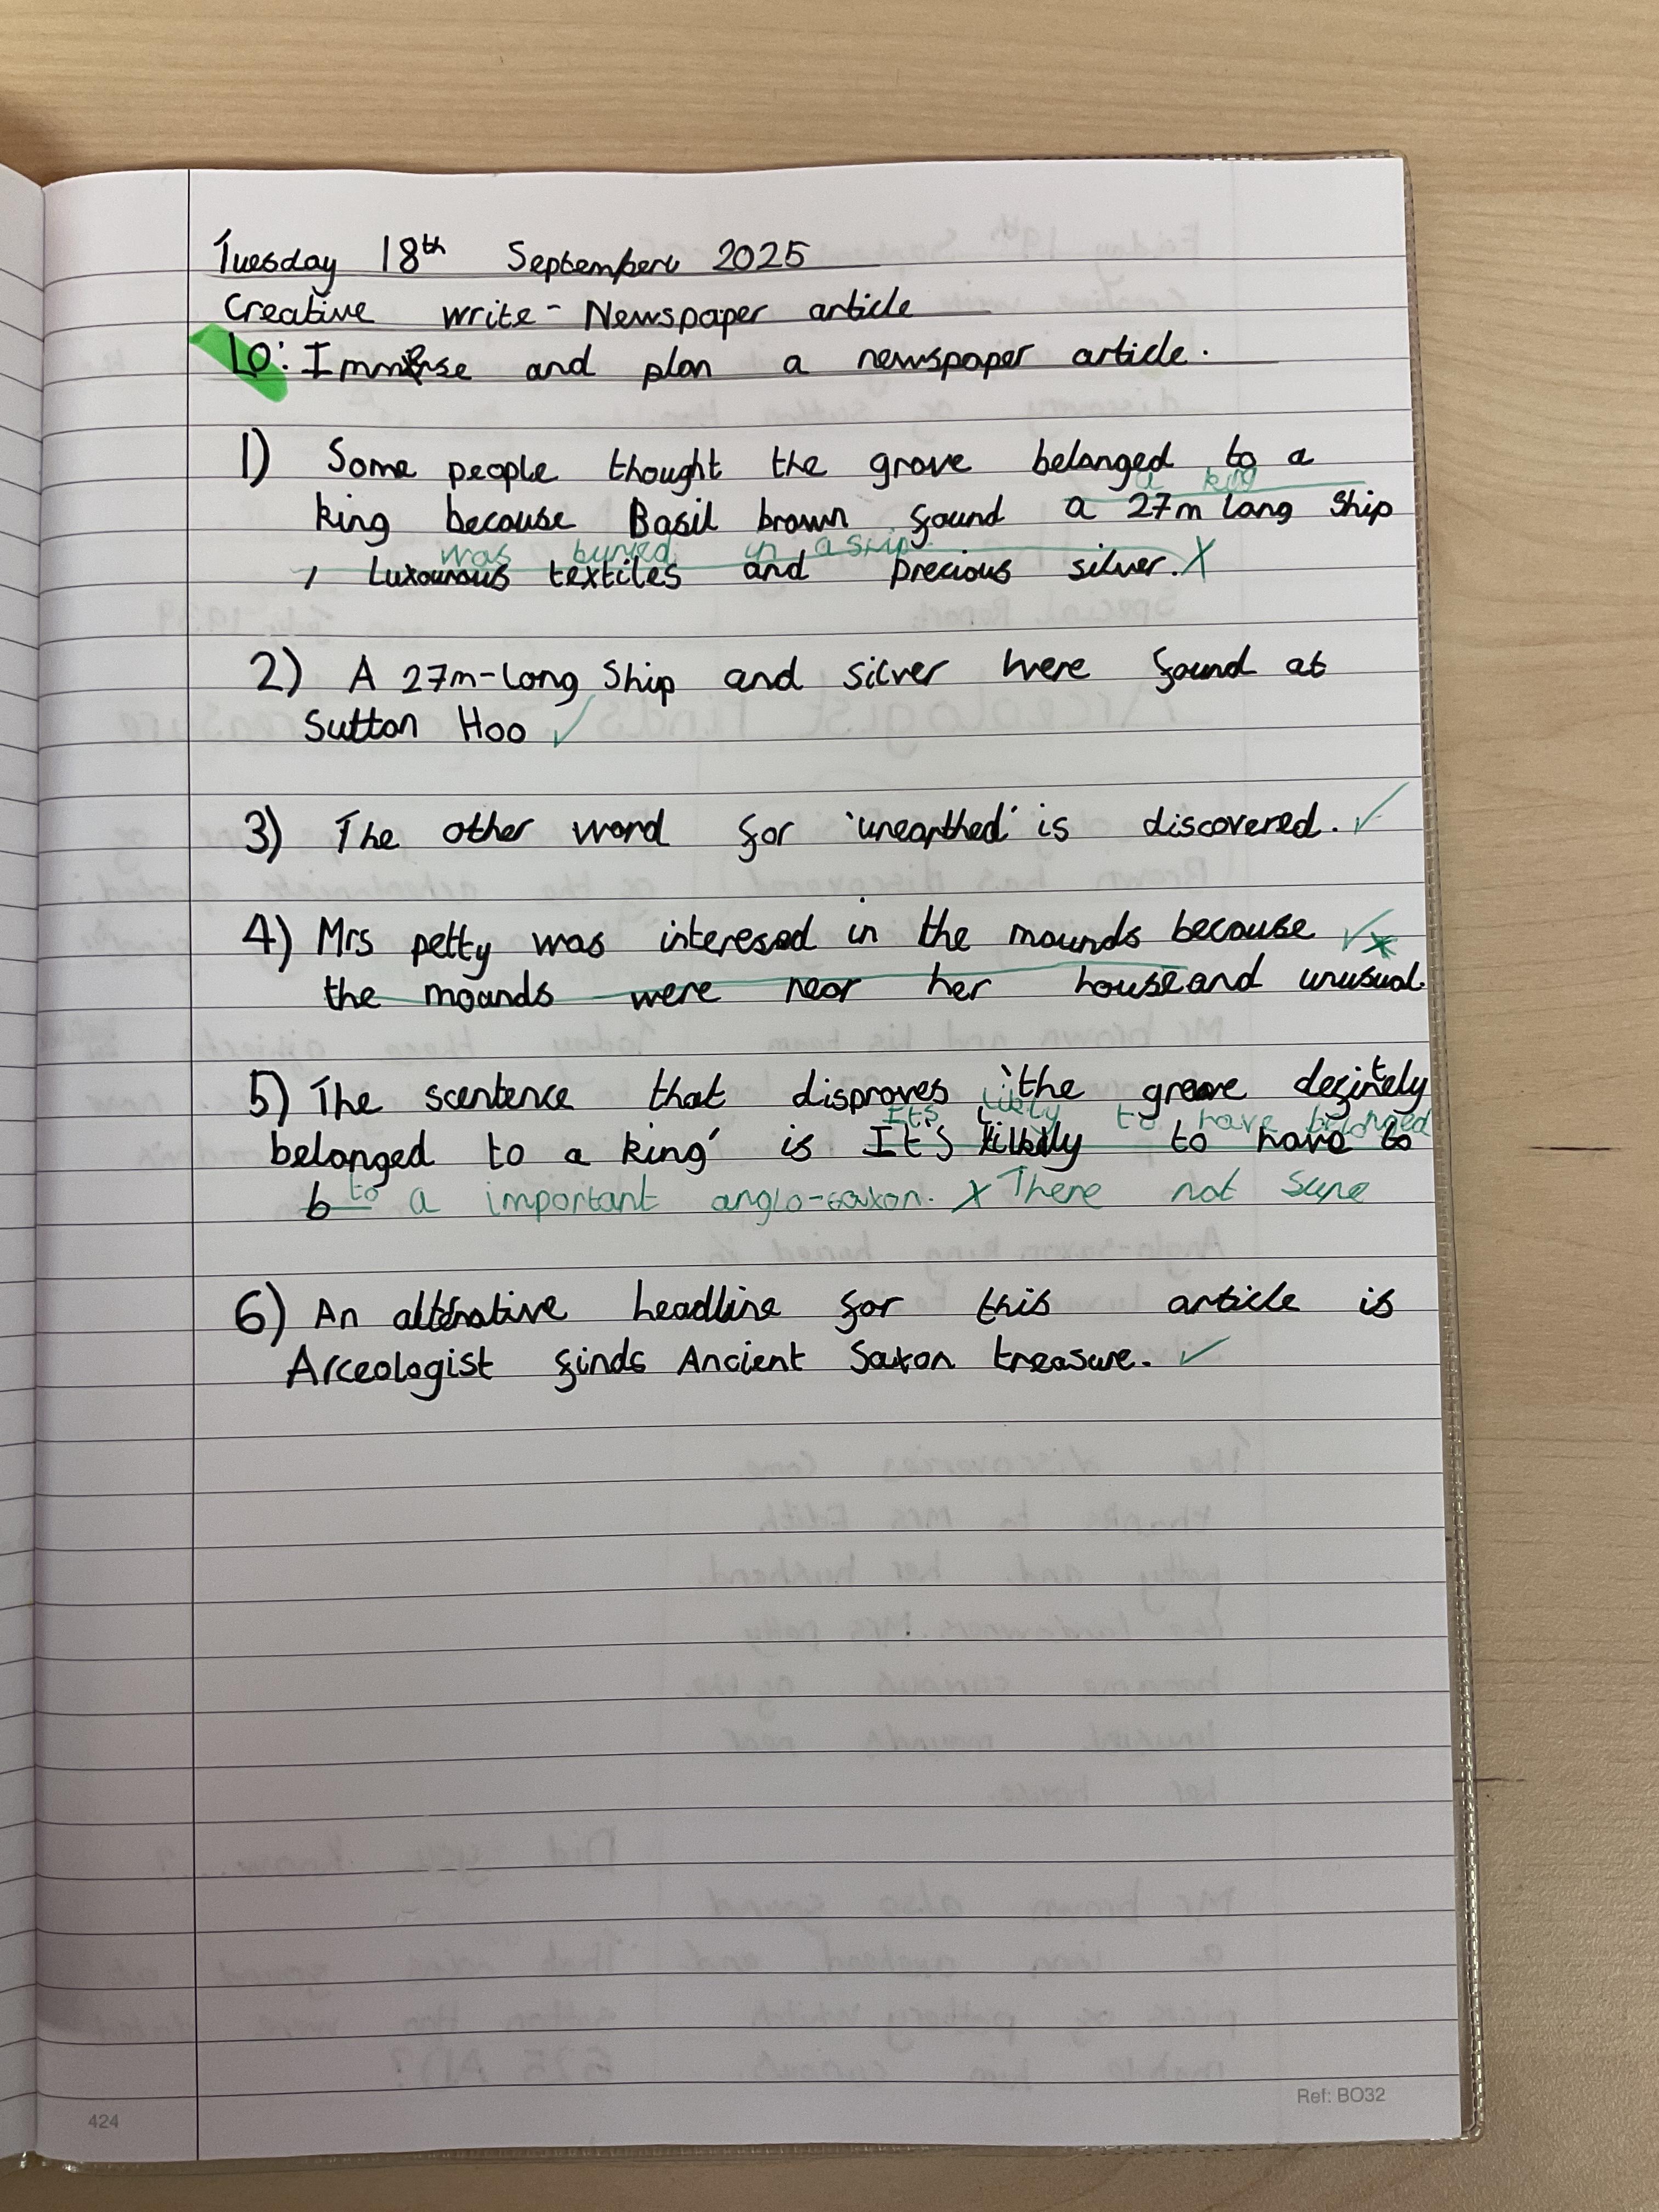 Tuesday 18th September 2025
Creative write - Newspaper article
LO: Immerse and plan a newspaper article.
1) Some people thought the grave belonged to a
a king
king because Basil brown found a 27m long ship
was buried in a ship
, Luxourous textiles and precious silver. X
2) A 27m-long ship and silver were found at
Sutton Hoo ✓
3) The other word for 'unearthed' is discovered. ✓
4) Mrs petty was interesed in the mounds because ✓
the mounds were near her house and unusual.
5) The scentence that disproves 'the grave definitely
It's likely to have belonged
belonged to a king' is It's likely to have to
b to a important anglo-saxon. X There not sure
6) An altinative headline for this article is
Arceologist finds Ancient Saxon treasure. ✓
424
Ref: BO32